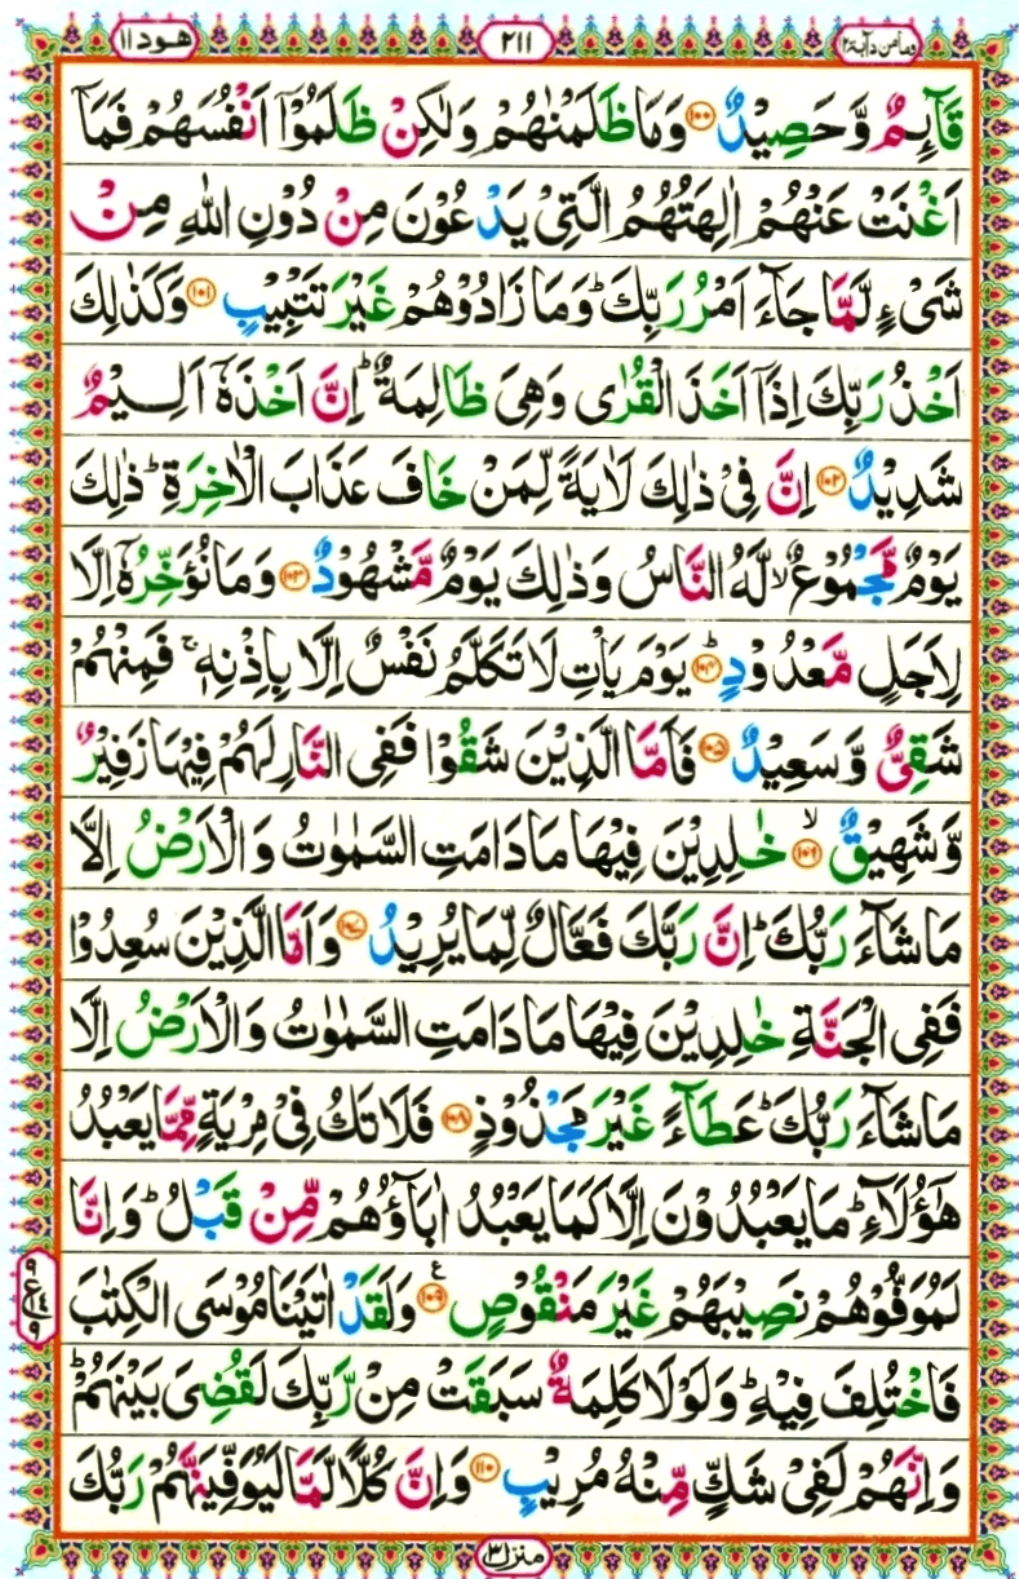 وما من دآبة ١٢
٢١١
هود ١١
قَآئِمٌ وَّحَصِيْدٌ ﴿۱۰۰﴾ وَمَا ظَلَمْنٰهُمْ وَلٰكِنْ ظَلَمُوْۤا اَنْفُسَهُمْ فَمَاۤ
اَغْنَتْ عَنْهُمْ اٰلِهَتُهُمُ الَّتِيْ يَدْعُوْنَ مِنْ دُوْنِ اللّٰهِ مِنْ
شَيْءٍ لَّمَّا جَآءَ اَمْرُ رَبِّكَ ؕ وَمَا زَادُوْهُمْ غَيْرَ تَتْبِيْبٍ ﴿۱۰۱﴾ وَكَذٰلِكَ
اَخْذُ رَبِّكَ اِذَاۤ اَخَذَ الْقُرٰى وَهِيَ ظَالِمَةٌ ؕ اِنَّ اَخْذَهٗۤ اَلِيْمٌ
شَدِيْدٌ ﴿۱۰۲﴾ اِنَّ فِيْ ذٰلِكَ لَاٰيَةً لِّمَنْ خَافَ عَذَابَ الْاٰخِرَةِ ؕ ذٰلِكَ
يَوْمٌ مَّجْمُوْعٌ ۙ لَّهُ النَّاسُ وَذٰلِكَ يَوْمٌ مَّشْهُوْدٌ ﴿۱۰۳﴾ وَمَا نُؤَخِّرُهٗۤ اِلَّا
لِاَجَلٍ مَّعْدُوْدٍ ﴿۱۰۴﴾ ؕ يَوْمَ يَاْتِ لَا تَكَلَّمُ نَفْسٌ اِلَّا بِاِذْنِهٖ ۚ فَمِنْهُمْ
شَقِيٌّ وَّسَعِيْدٌ ﴿۱۰۵﴾ فَاَمَّا الَّذِيْنَ شَقُوْا فَفِي النَّارِ لَهُمْ فِيْهَا زَفِيْرٌ
وَّشَهِيْقٌ ﴿۱۰۶﴾ ۙ خٰلِدِيْنَ فِيْهَا مَا دَامَتِ السَّمٰوٰتُ وَالْاَرْضُ اِلَّا
مَا شَآءَ رَبُّكَ ؕ اِنَّ رَبَّكَ فَعَّالٌ لِّمَا يُرِيْدُ ﴿۱۰۷﴾ وَاَمَّا الَّذِيْنَ سُعِدُوْا
فَفِي الْجَنَّةِ خٰلِدِيْنَ فِيْهَا مَا دَامَتِ السَّمٰوٰتُ وَالْاَرْضُ اِلَّا
مَا شَآءَ رَبُّكَ ؕ عَطَآءً غَيْرَ مَجْذُوْذٍ ﴿۱۰۸﴾ فَلَا تَكُ فِيْ مِرْيَةٍ مِّمَّا يَعْبُدُ
هٰۤؤُلَآءِ ؕ مَا يَعْبُدُوْنَ اِلَّا كَمَا يَعْبُدُ اٰبَآؤُهُمْ مِّنْ قَبْلُ ؕ وَاِنَّا
لَمُوَفُّوْهُمْ نَصِيْبَهُمْ غَيْرَ مَنْقُوْصٍ ﴿۱۰۹﴾ ع وَلَقَدْ اٰتَيْنَا مُوْسَى الْكِتٰبَ
فَاخْتُلِفَ فِيْهِ ؕ وَلَوْلَا كَلِمَةٌ سَبَقَتْ مِنْ رَّبِّكَ لَقُضِيَ بَيْنَهُمْ ؕ
وَاِنَّهُمْ لَفِيْ شَكٍّ مِّنْهُ مُرِيْبٍ ﴿۱۱۰﴾ وَاِنَّ كُلًّا لَّمَّا لَيُوَفِّيَنَّهُمْ رَبُّكَ
٩ ع ٤ ٩
منزل ٣